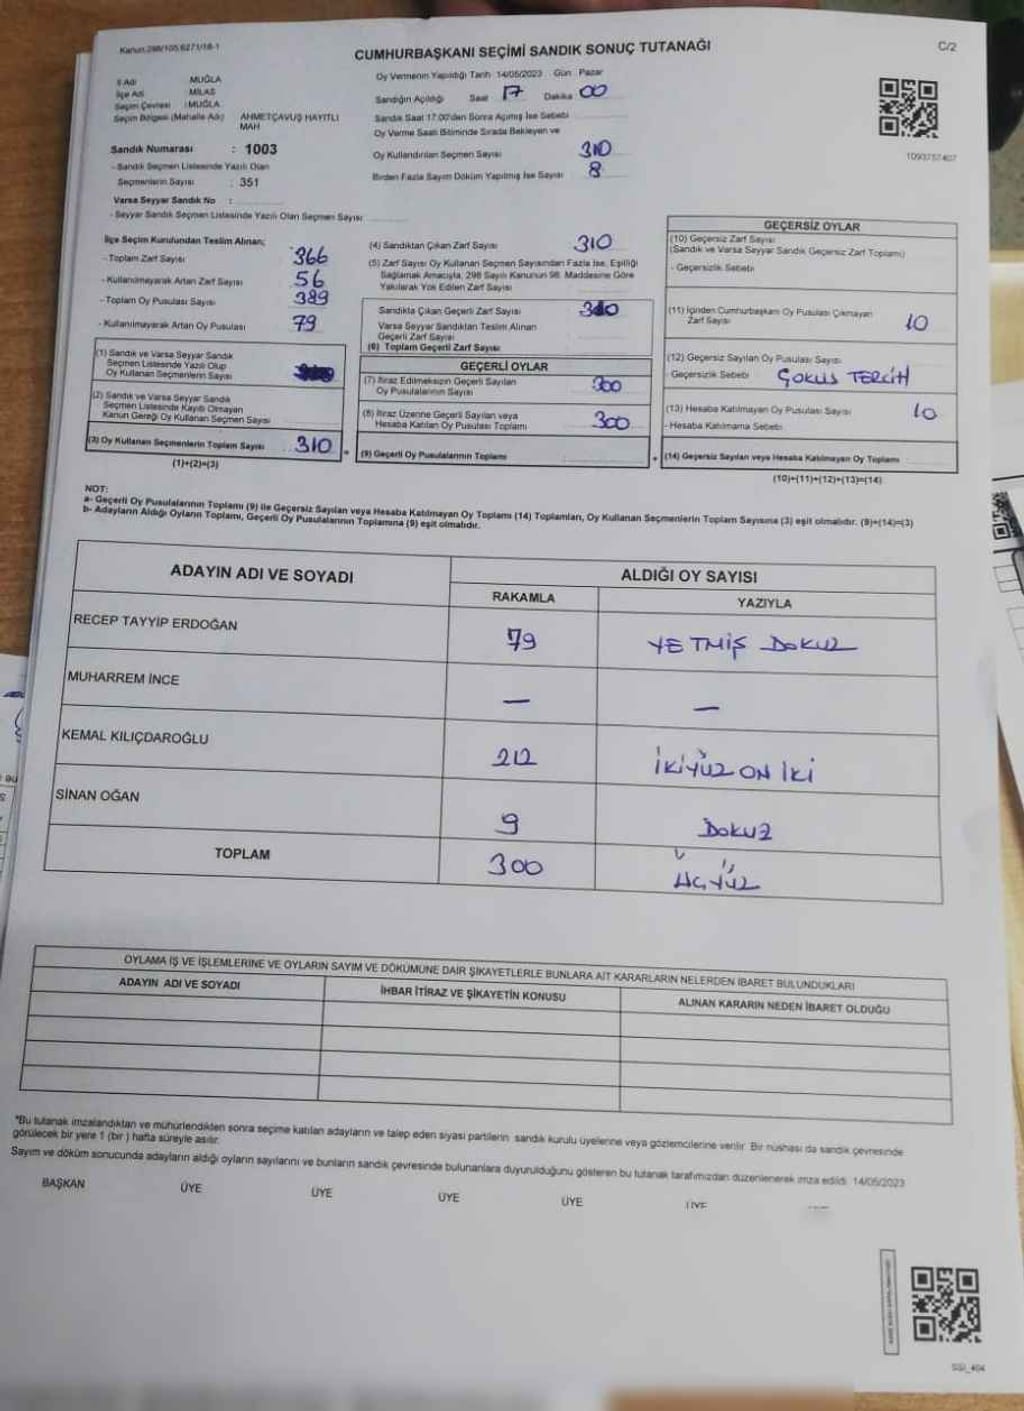 Kanun:298/105,6271/18-1
CUMHURBAŞKANI SEÇİMİ SANDIK SONUÇ TUTANAĞI
C/2
İl Adı MUĞLA
İlçe Adı MİLAS
Seçim Çevresi : MUĞLA
Seçim Bölgesi (Mahalle Adı) AHMETÇAVUŞ HAYITLI MAH
Sandık Numarası : 1003
- Sandık Seçmen Listesinde Yazılı Olan
Seçmenlerin Sayısı : 351
Varsa Seyyar Sandık No :
- Seyyar Sandık Seçmen Listesinde Yazılı Olan Seçmen Sayısı
Oy Vermenin Yapıldığı Tarih 14/05/2023 Gün Pazar
Sandığın Açıldığı Saat 17 Dakika 00
Sandık Saat 17:00'den Sonra Açılmış İse Sebebi
Oy Verme Saati Bitiminde Sırada Bekleyen ve
Oy Kullandırılan Seçmen Sayısı 310
Birden Fazla Sayım Döküm Yapılmış İse Sayısı 8
1093757407
İlçe Seçim Kurulundan Teslim Alınan;
- Toplam Zarf Sayısı 366
- Kullanılmayarak Artan Zarf Sayısı 56
- Toplam Oy Pusulası Sayısı 389
- Kullanılmayarak Artan Oy Pusulası 79
(1) Sandık ve Varsa Seyyar Sandık
Seçmen Listesinde Yazılı Olup
Oy Kullanan Seçmenlerin Sayısı
(2) Sandık ve Varsa Seyyar Sandık
Seçmen Listesinde Kayıtlı Olmayan
Kanun Gereği Oy Kullanan Seçmen Sayısı
(3) Oy Kullanan Seçmenlerin Toplam Sayısı 310
(1)+(2)=(3)
(4) Sandıktan Çıkan Zarf Sayısı 310
(5) Zarf Sayısı Oy Kullanan Seçmen Sayısından Fazla İse, Eşitliği
Sağlamak Amacıyla, 298 Sayılı Kanunun 98. Maddesine Göre
Yakılarak Yok Edilen Zarf Sayısı
Sandıkta Çıkan Geçerli Zarf Sayısı 310
Varsa Seyyar Sandıktan Teslim Alınan
Geçerli Zarf Sayısı
(6) Toplam Geçerli Zarf Sayısı
GEÇERLİ OYLAR
(7) İtiraz Edilmeksizin Geçerli Sayılan
Oy Pusulalarının Sayısı 300
(8) İtiraz Üzerine Geçerli Sayılan veya
Hesaba Katılan Oy Pusulası Toplamı 300
(9) Geçerli Oy Pusulalarının Toplamı
GEÇERSİZ OYLAR
(10) Geçersiz Zarf Sayısı
(Sandık ve Varsa Seyyar Sandık Geçersiz Zarf Toplamı)
- Geçersizlik Sebebi
(11) İçinden Cumhurbaşkanı Oy Pusulası Çıkmayan
Zarf Sayısı 10
(12) Geçersiz Sayılan Oy Pusulası Sayısı
- Geçersizlik Sebebi ÇOKLU TERCİH
(13) Hesaba Katılmayan Oy Pusulası Sayısı 10
- Hesaba Katılmama Sebebi
(14) Geçersiz Sayılan veya Hesaba Katılmayan Oy Toplamı
(10)+(11)+(12)+(13)=(14)
NOT:
a- Geçerli Oy Pusulalarının Toplamı (9) ile Geçersiz Sayılan veya Hesaba Katılmayan Oy Toplamı (14) Toplamları, Oy Kullanan Seçmenlerin Toplam Sayısına (3) eşit olmalıdır. (9)+(14)=(3)
b- Adayların Aldığı Oyların Toplamı, Geçerli Oy Pusulalarının Toplamına (9) eşit olmalıdır.
ADAYIN ADI VE SOYADI
ALDIĞI OY SAYISI
RAKAMLA YAZIYLA
RECEP TAYYİP ERDOĞAN 79 YETMİŞ DOKUZ
MUHARREM İNCE — —
KEMAL KILIÇDAROĞLU 212 İKİYÜZ ON İKİ
SİNAN OĞAN 9 DOKUZ
TOPLAM 300 ÜÇYÜZ
OYLAMA İŞ VE İŞLEMLERİNE VE OYLARIN SAYIM VE DÖKÜMÜNE DAİR ŞİKAYETLERLE BUNLARA AİT KARARLARIN NELERDEN İBARET BULUNDUKLARI
ADAYIN ADI VE SOYADI İHBAR İTİRAZ VE ŞİKAYETİN KONUSU ALINAN KARARIN NEDEN İBARET OLDUĞU
*Bu tutanak imzalandıktan ve mühürlendikten sonra seçime katılan adayların ve talep eden siyasi partilerin sandık kurulu üyelerine veya gözlemcilerine verilir. Bir nüshası da sandık çevresinde
görülecek bir yere 1 (bir) hafta süreyle asılır.
Sayım ve döküm sonucunda adayların aldığı oyların sayılarını ve bunların sandık çevresinde bulunanlara duyurulduğunu gösteren bu tutanak tarafımızdan düzenlenerek imza edildi. 14/05/2023
BAŞKAN ÜYE ÜYE ÜYE ÜYE ÜYE
SSI_404